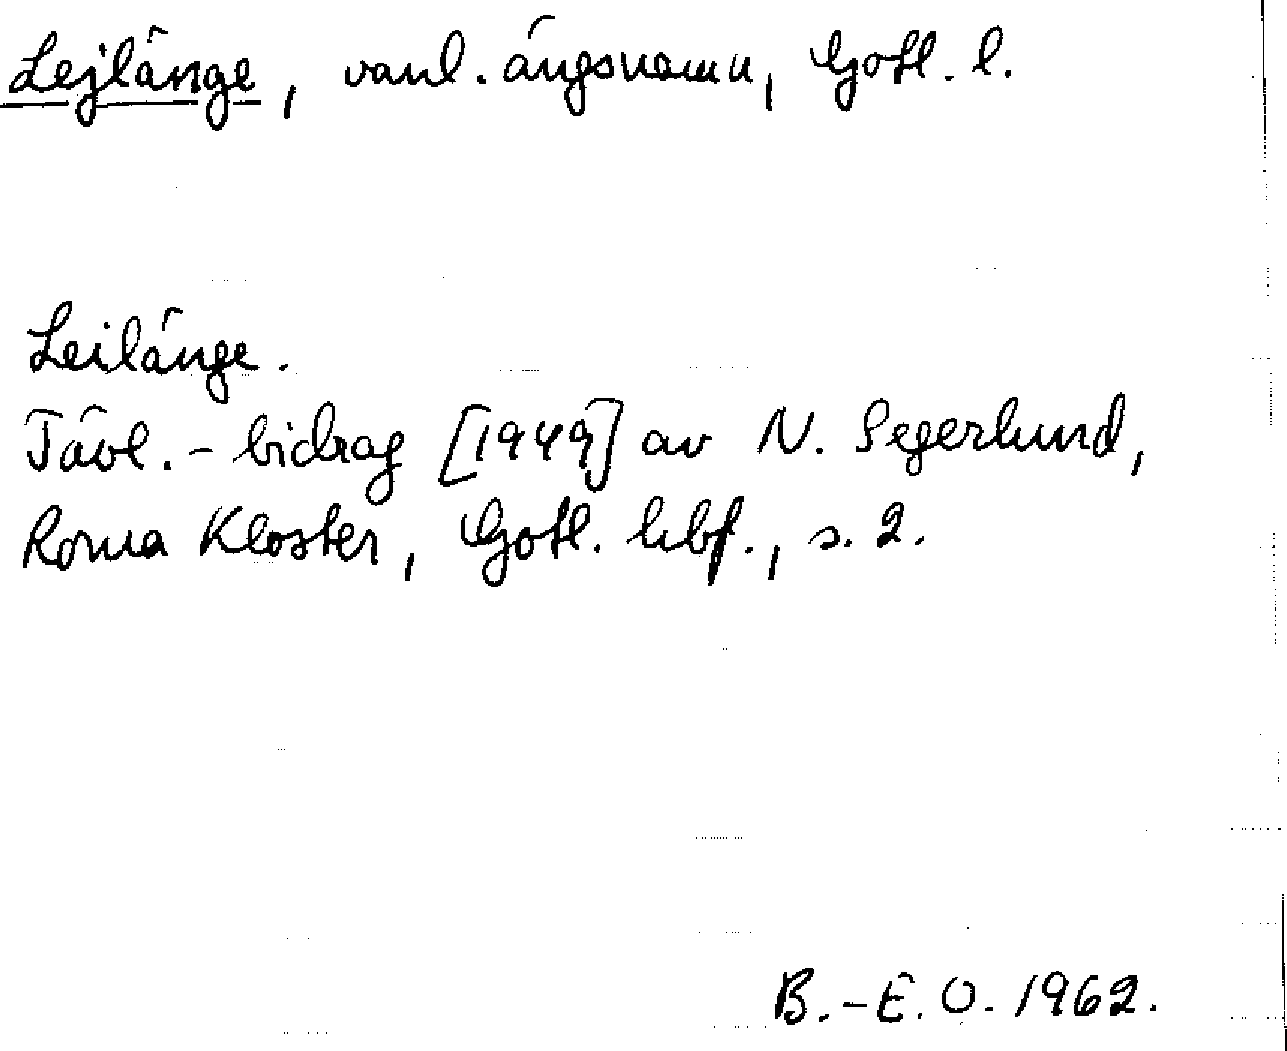 Lejlänge, vanl. ängsnamn, Gotl. l.
Leilänge.
Tävl.-bidrag [1949] av N. Segerlund,
Roma Kloster, Gotl. hbf., s. 2.
B.-E. O. 1962.